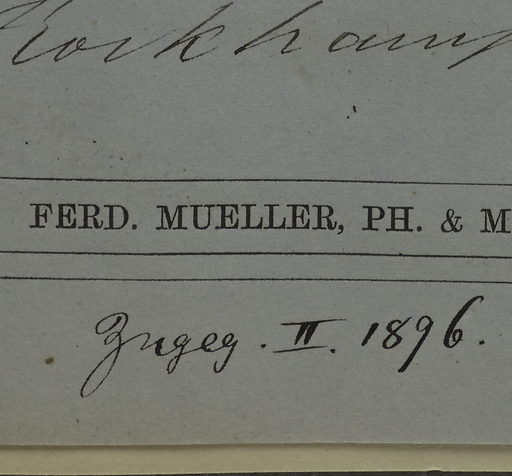 Rockhamp
FERD. MUELLER, PH. & M
Zugeg. II. 1896.